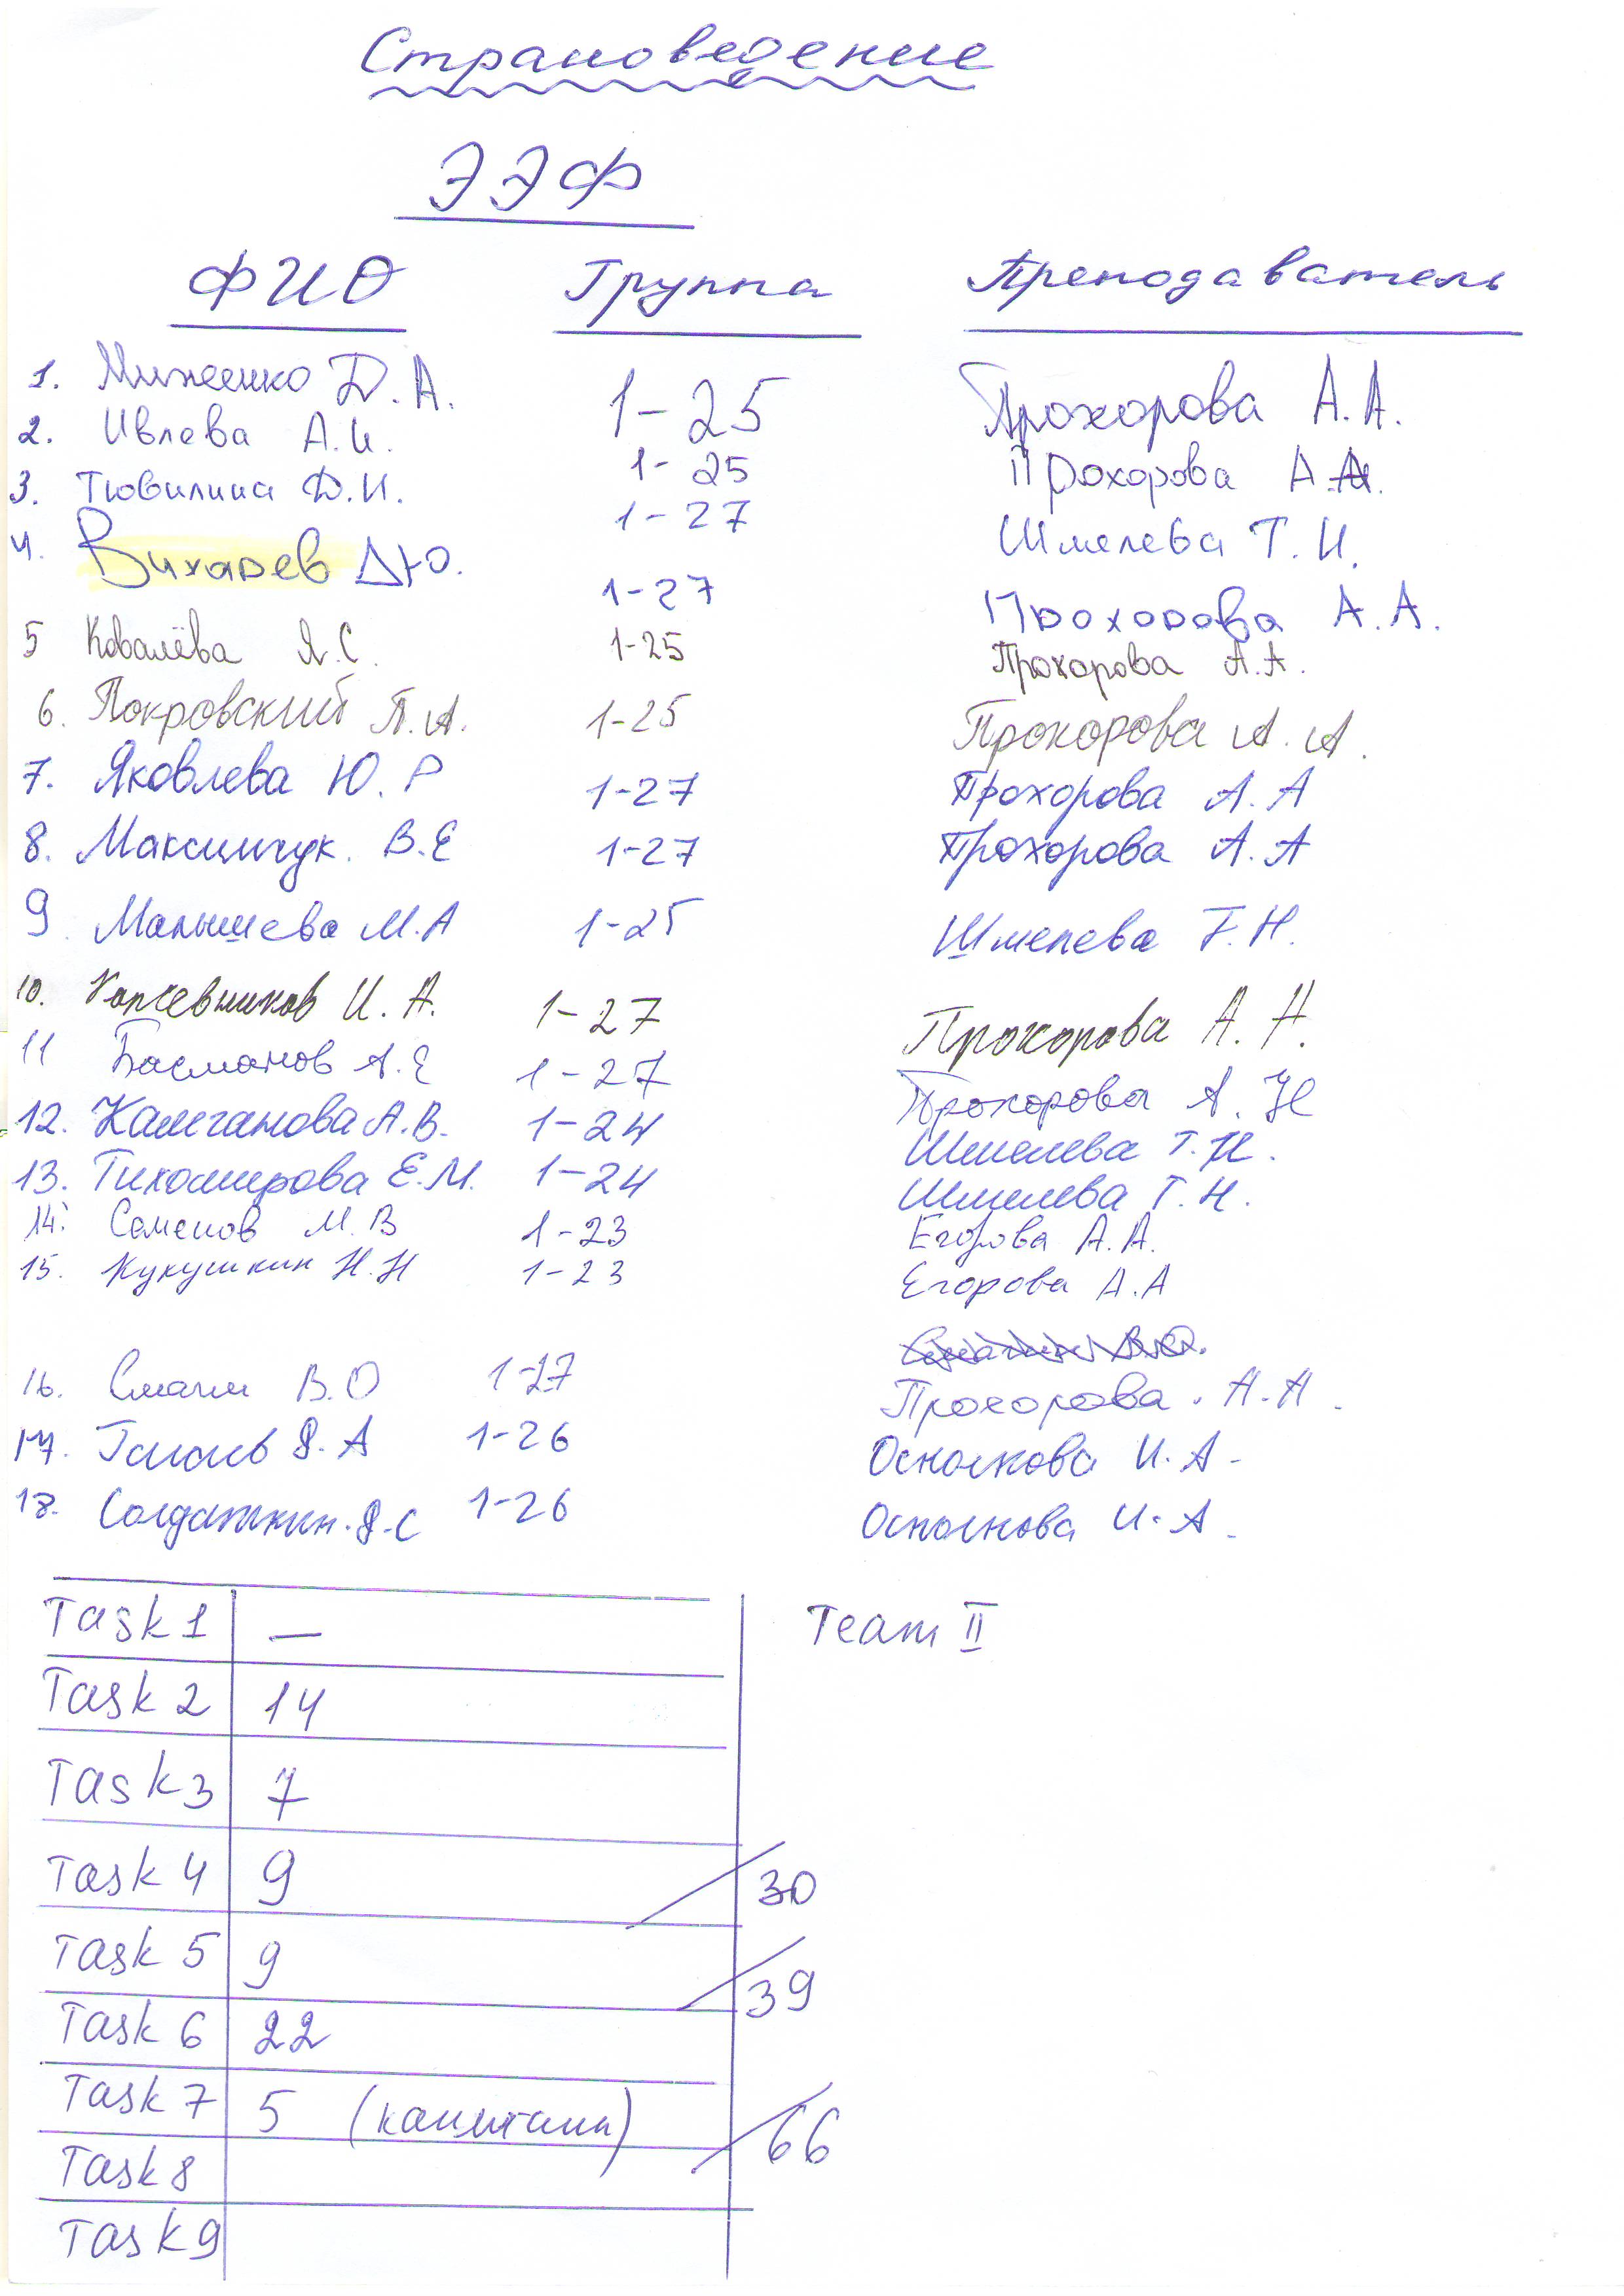 Страноведение
ЭЭФ
ФИО Группа Преподаватель
1. Михеенко Д.А. 1-25 Прохорова А.А.
2. Ивлева А.И. 1-25 Прохорова А.А.
3. Тювилина Д.И. 1-27 Шмелева Т.И.
4. Вихарев Д.Ю. 1-27 Прохорова А.А.
5 Ковалёва Я.С. 1-25 Прохорова А.А.
6. Покровский П.А. 1-25 Прохорова А.А.
7. Яковлева Ю.Р 1-27 Прохорова А.А
8. Максимчук. В.Е 1-27 Прохорова А.А
9 Малышева М.А 1-25 Шмелева Т.Н.
10. И.А. 1-27 Прохорова А.Н.
11 Басманов А.Е 1-27 Прохорова А.Н
12. Калиганова А.В. 1-24 Шмелева Т.Н.
13. Тихомирова Е.М. 1-24 Шмелева Т.Н.
14. Семенов М.В 1-23 Егорова А.А.
15. Кукушкин Н.Н 1-23 Егорова А.А
16. Смагин В.О 1-27 Прохорова. А.А.
17. Д.А 1-26 И.А-
18. Солдаткин. Д.С 1-26 И.А-
Task 1 — Team II
Task 2 14
Task 3 7
Task 4 9 30
Task 5 9 39
Task 6 22
Task 7 5 (капитаны) 66
Task 8
Task 9